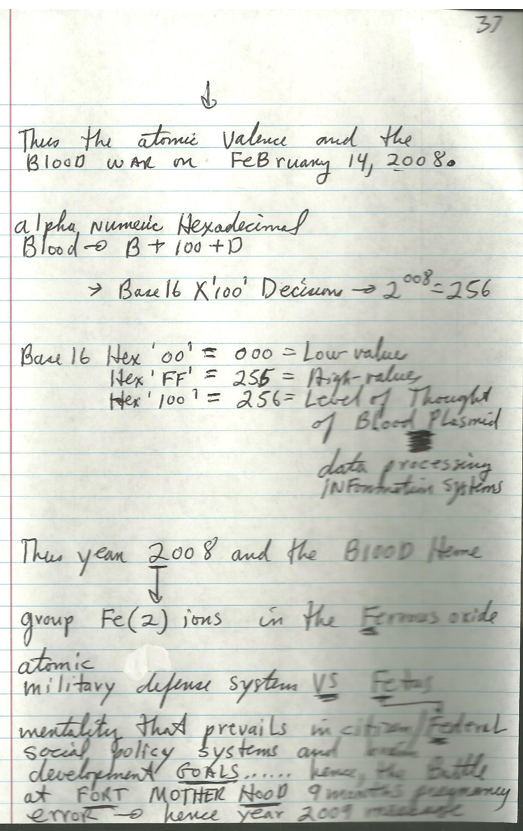 37
↓
Thus the atomic valence and the
BLOOD WAR on FeBruary 14, 2008.
alpha numeric Hexadecimal
Blood → B + 100 + D
→ Base 16 X'100' Decisions → 2^008 = 256
Base 16 Hex '00' = 000 = Low-value
Hex 'FF' = 255 = High-values
Hex '100' = 256 = Level of Thought
of Blood Plasmid
data processing
INFormation systems
Thus year 2008 and the BlOOD Heme
↓
group Fe(2) ions in the Ferrous oxide
atomic
military defense system VS Fetus
mentality that prevails in citizen/Federal
social policy systems and
development GOALS...... hence, the Battle
at FORT MOTHER HOOD 9 months pregnancy
error → hence year 2009 message